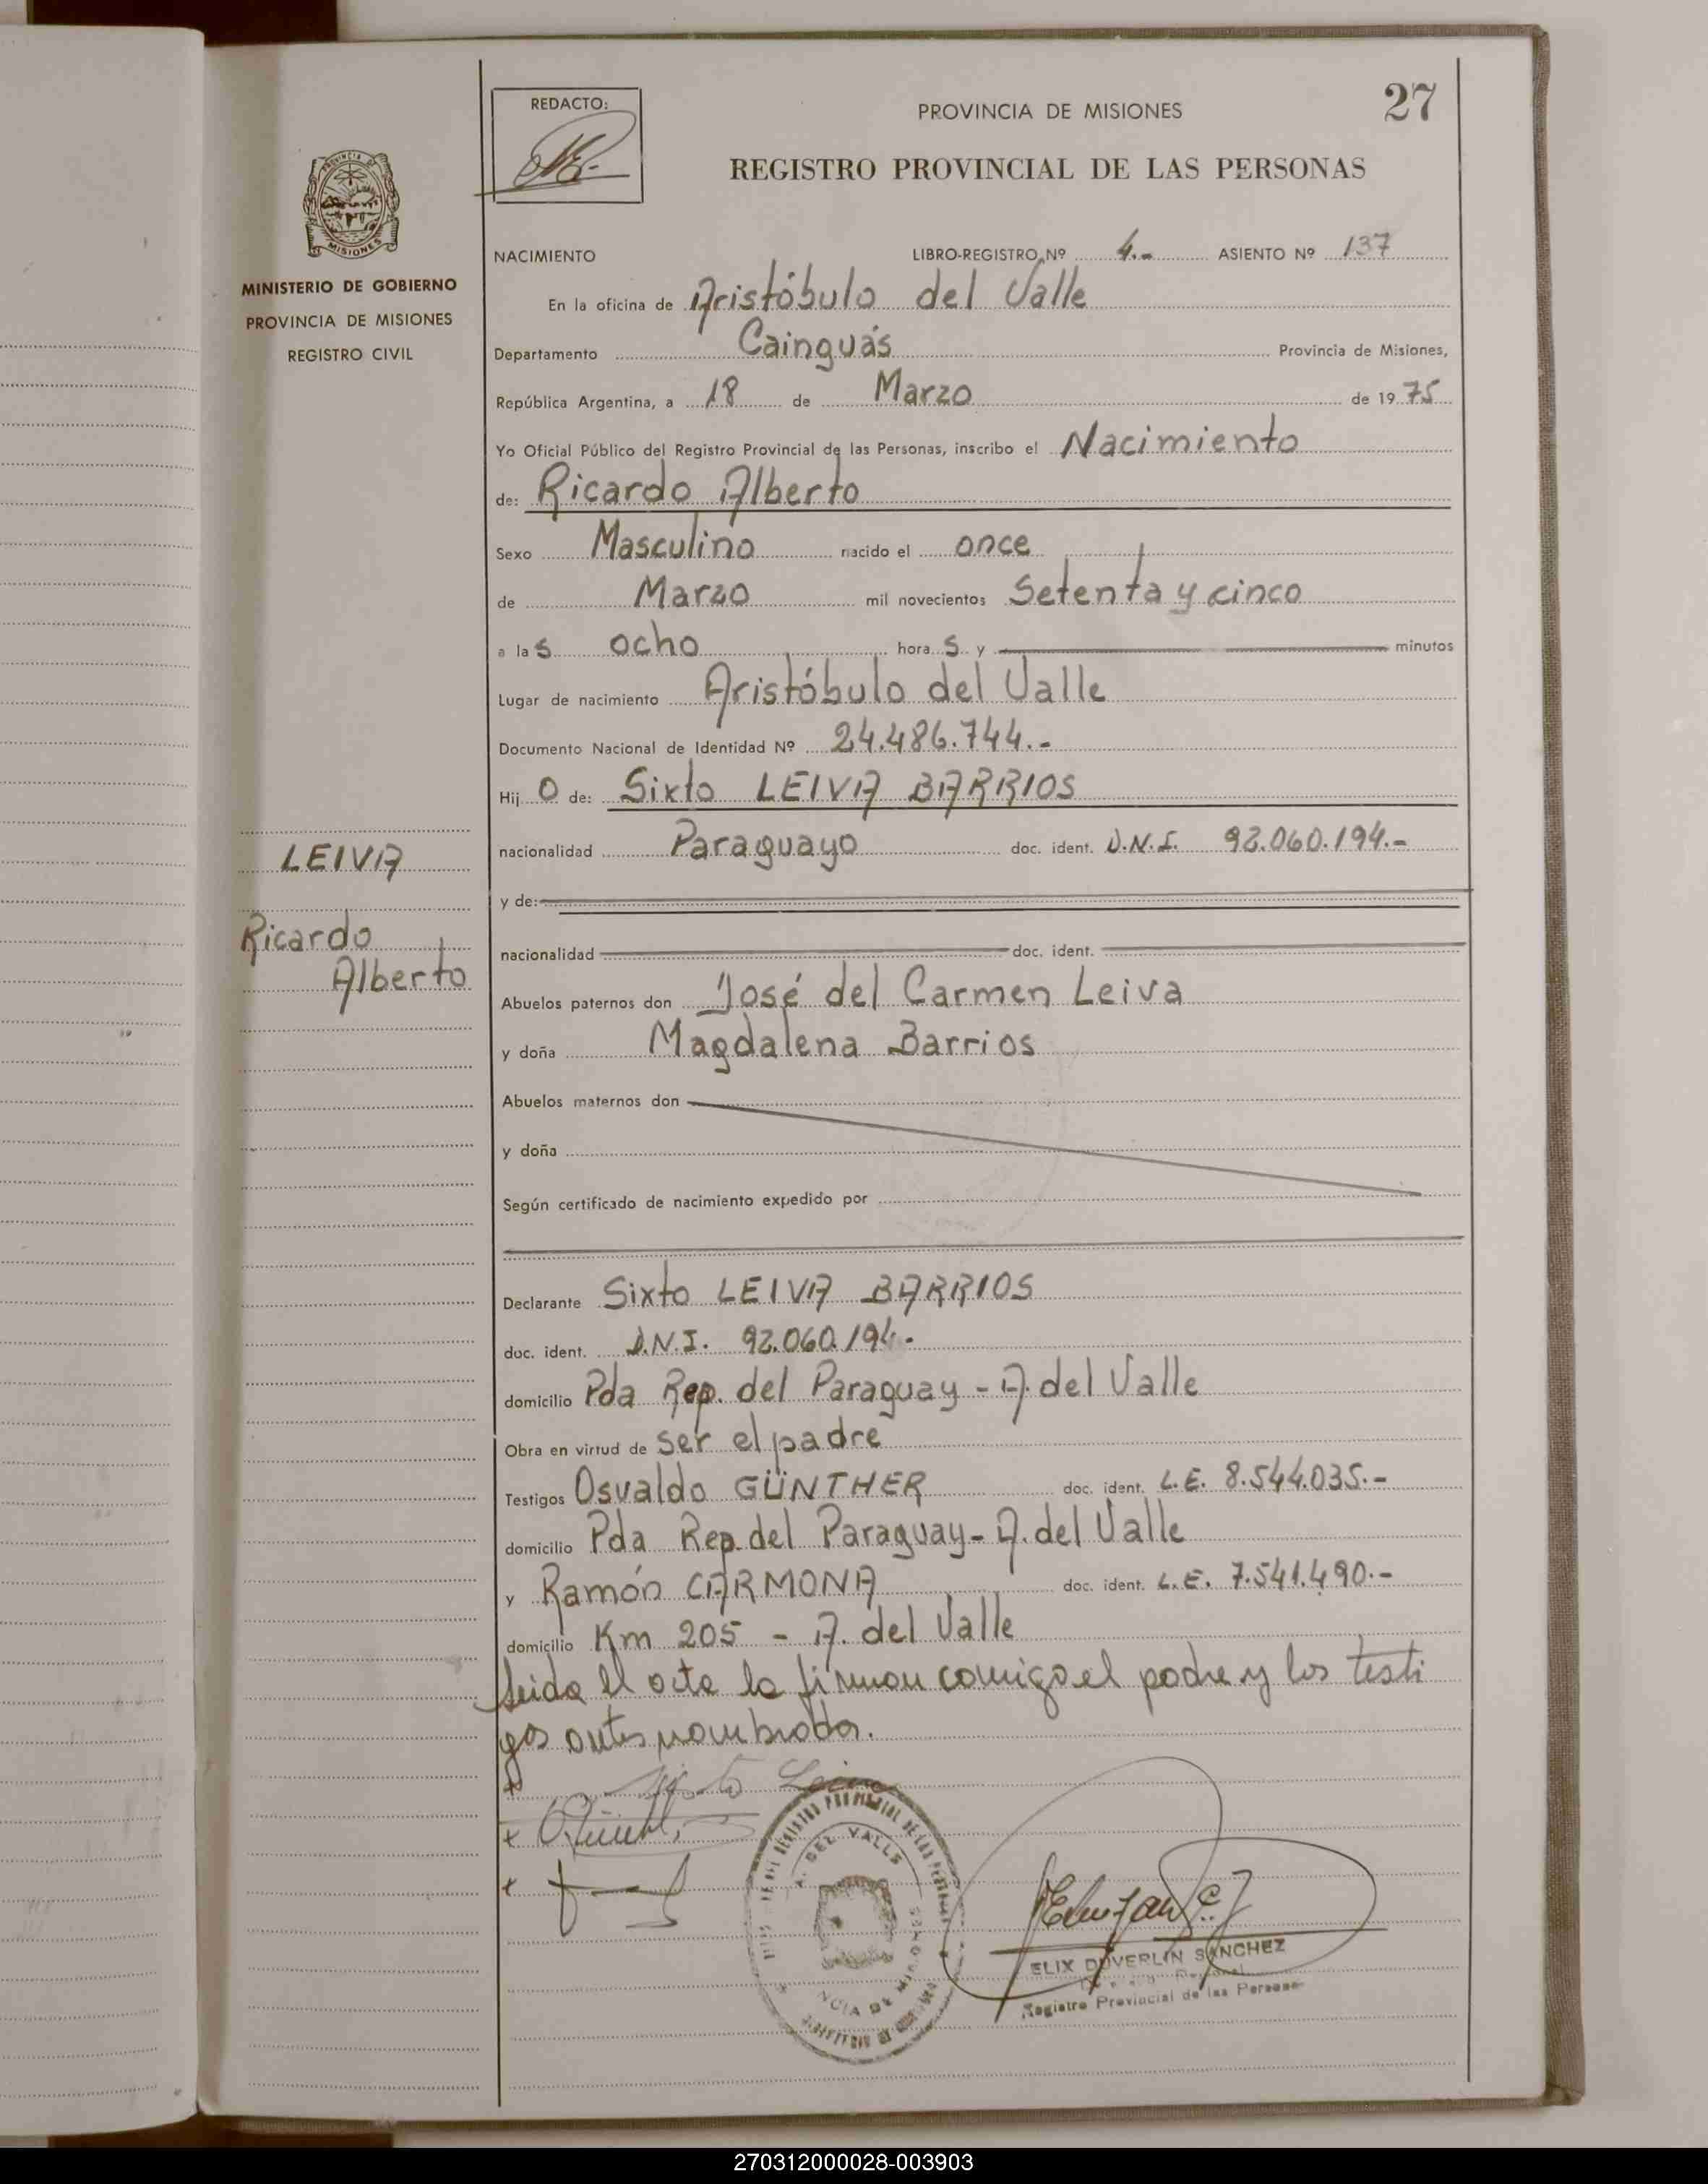 27
REDACTO:
PROVINCIA DE MISIONES
REGISTRO PROVINCIAL DE LAS PERSONAS
PROVINCIA DE
MISIONES
MINISTERIO DE GOBIERNO
PROVINCIA DE MISIONES
REGISTRO CIVIL
NACIMIENTO LIBRO-REGISTRO Nº 4.- ASIENTO Nº 137
En la oficina de Aristóbulo del Valle
Departamento Cainguás Provincia de Misiones,
República Argentina, a 18 de Marzo de 1975
Yo Oficial Público del Registro Provincial de las Personas, inscribo el Nacimiento
de: Ricardo Alberto
Sexo Masculino nacido el once
de Marzo mil novecientos Setenta y cinco
a las ocho horas y minutos
Lugar de nacimiento Aristóbulo del Valle
Documento Nacional de Identidad Nº 24.486.744.-
Hijo de: Sixto LEIVA BARRIOS
nacionalidad Paraguayo doc. ident. D.N.I. 92.060.194.-
LEIVA
Ricardo
Alberto
y de:
nacionalidad doc. ident.
Abuelos paternos don José del Carmen Leiva
y doña Magdalena Barrios
Abuelos maternos don
y doña
Según certificado de nacimiento expedido por
Declarante Sixto LEIVA BARRIOS
doc. ident. D.N.I. 92.060.194.-
domicilio Pda Rep. del Paraguay - A. del Valle
Obra en virtud de ser el padre
Testigos Osvaldo GÜNTHER doc. ident. L.E. 8.544.035.-
domicilio Pda Rep. del Paraguay - A. del Valle
y Ramón CARMONA doc. ident. L.E. 7.541.490.-
domicilio Km 205 - A. del Valle
Leida el acta la firman comigo el padre y los testi
gos antes nombrados.
Sixto Leiva
REGISTRO PROVINCIAL DE LAS PERSONAS
A. DEL VALLE
ELIX DUVERLIN SANCHEZ
Registro Provincial de las Personas
270312000028-003903